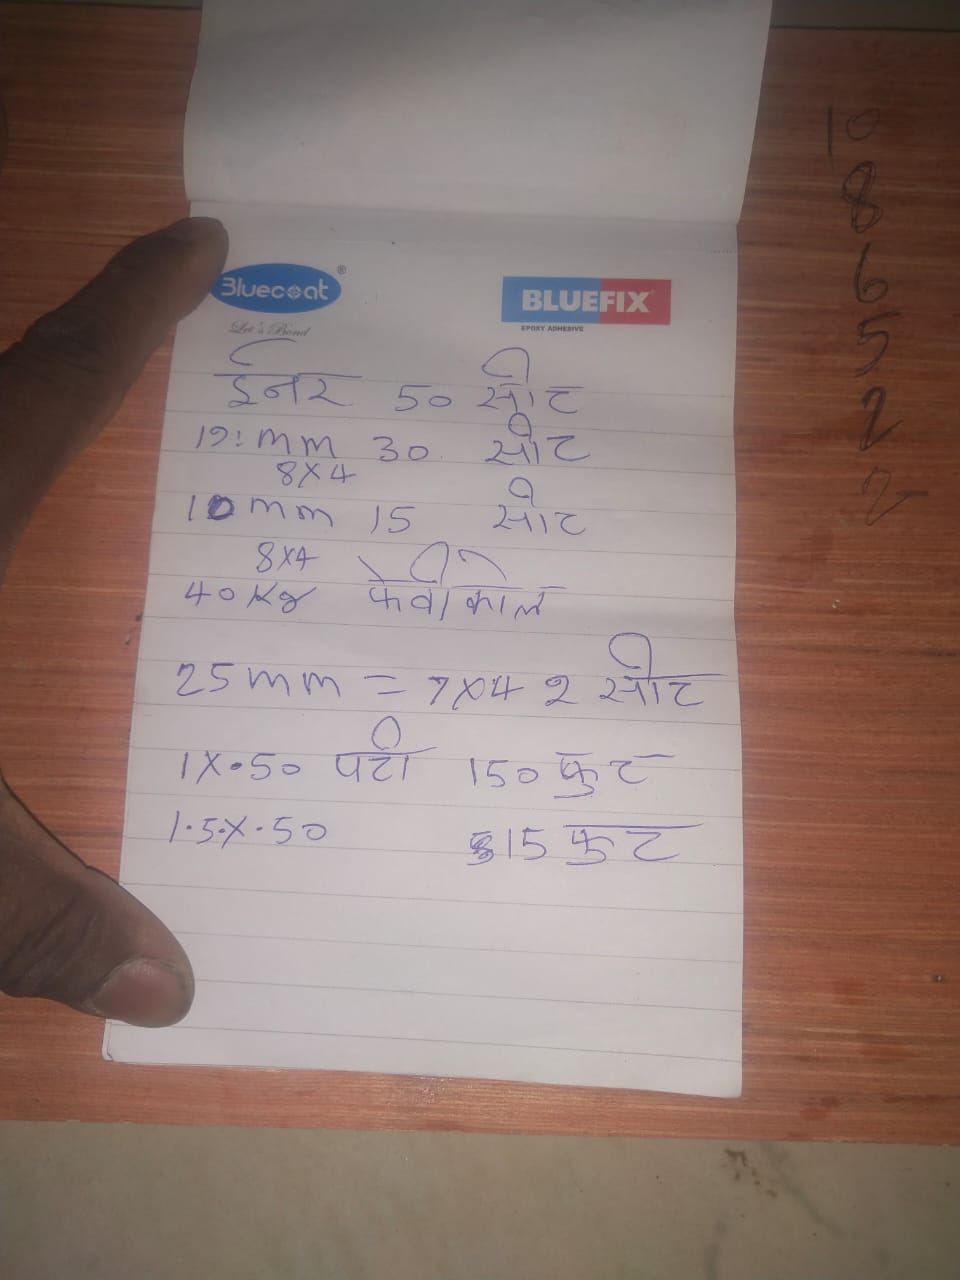 Bluecoat®
Let's Bond
BLUEFIX
EPOXY ADHESIVE
इनर 50 सीट
19! mm 30 सीट
8X4
10 mm 15 सीट
8X4
40 Kg फेवीकोल
25 mm = 7X4 2 सीट
1X.50 पटी 150 फुट
1.5.X.50 15 फुट
10
8
6
5
2
2